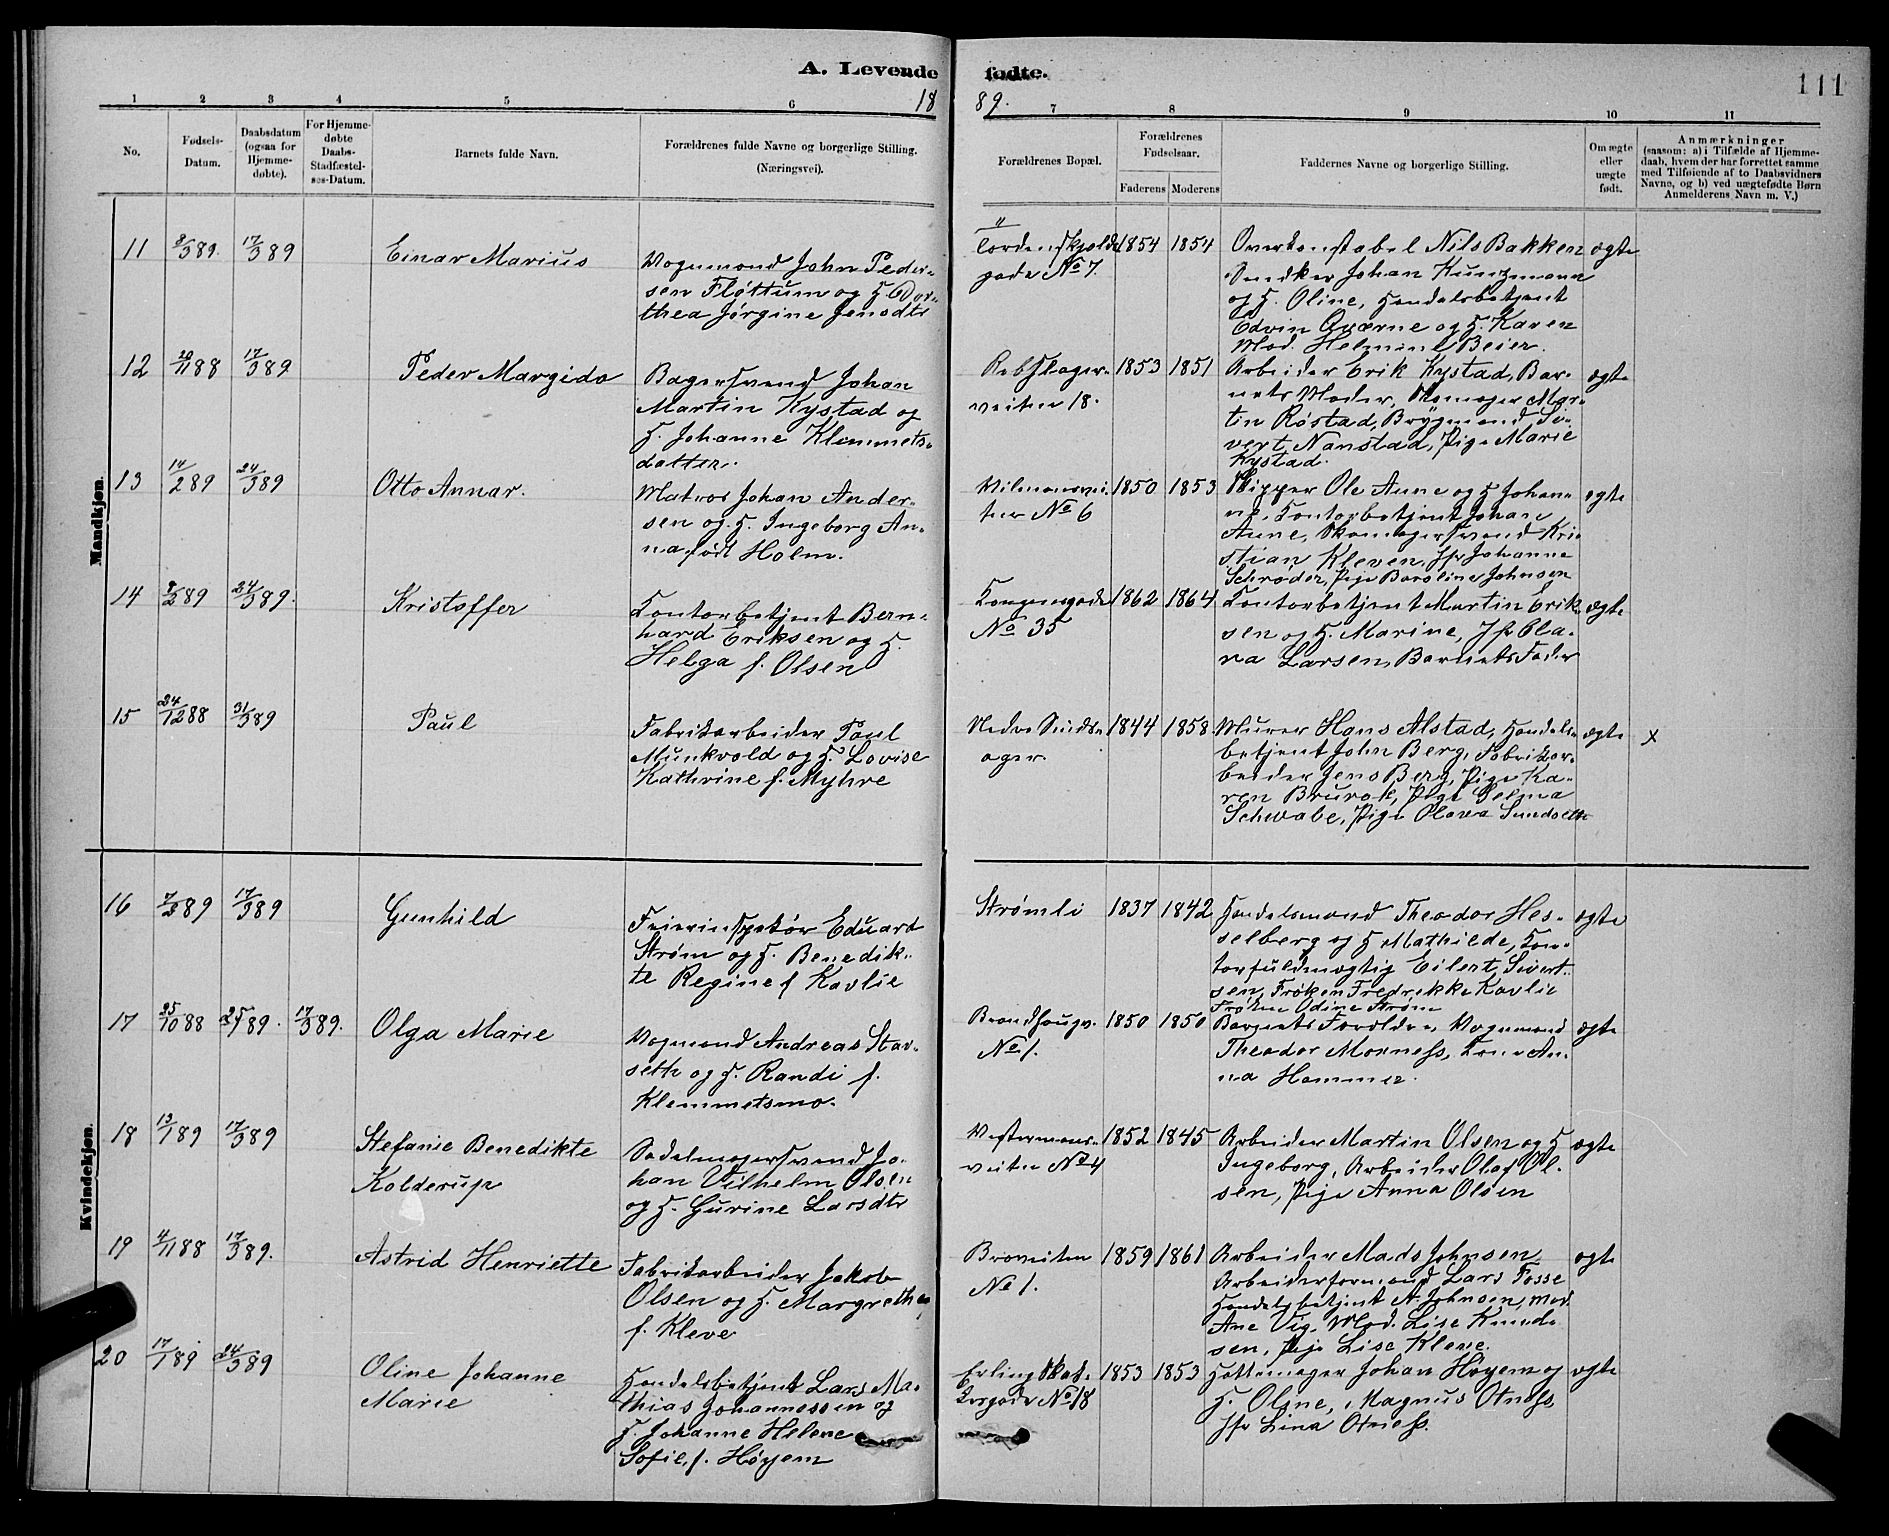 A. Levende fødte.
111
1 2 3 4 5 6 18 89. 7 8 9 10 11
No.
Fødsels-
Datum.
Daabsdatum
(ogsaa for
Hjemme-
døbte).
For Hjemme-
døbte
Daabs-
Stadfæstel-
ses-Datum.
Barnets fulde Navn.
Forældrenes fulde Navne og borgerlige Stilling.
(Næringsvei).
Forældrenes Bopæl.
Forældrenes
Fødselsaar.
Faderens Moderens
Faddernes Navne og borgerlige Stilling.
Om ægte
eller
uægte
født.
Anmærkninger
(saasom: a) i Tilfælde af Hjemme-
daab, hvem der har forrettet samme
med Tilføiende af to Daabsvidners
Navne, og b) ved uægtefødte Børn
Anmelderens Navn m. V.)
Mandkjøn.
11 8/3 89. 17/3 89 Einar Marius
Vognmand John Peder-
sen Fløttum og H. Dor-
thea Jørgine Jensdtr
Tordenskjolds
gade No 7.
1854 1854
Overkonstabel Nils Bakken
Snedker Johan Kunzmann
og H. Oline, Handelsbetjent
Edvin Qværne og H. Karen
Mad. Helmine Beier.
ægte
12 20/11 88 17/3 89 Peder Margido
Bagersvend Johan
Martin Kystad og
H. Johanne Klemmets-
datter.
Rebslager-
veiten 18.
1853 1851
Arbeider Erik Kystad, Bar-
nets Moder, Skomager Mar-
tin Røstad, Brygmand Si-
vert Nanstad, Pige Marie
Kystad.
ægte
13 14/2 89 24/3 89 Otto Annar.
Matros Johan Ander-
sen og H. Ingeborg An-
na født Holm.
Vilmansvei-
ten No 6
1850 1853
Skipper Ole Aune og H Johan-
ne, Kontorbetjent Johan
Aune, Skomagersvend Kri-
stian Kleven, Jfr Johanne
Schrøder, Pige Baroline Johnsen
ægte
14 8/2 89 24/3 89. Kristoffer
Kontorbetjent Bern-
hard Eriksen og H.
Helga f. Olsen
Kongensgade
No 35
1862 1864
Kontorbetjent Martin Erik-
sen og H. Marine, Jfr Cla-
ra Larsen, Barnets Fader
ægte
15 24/12 88 31/3 89 Paul
Fabrikarbeider Paul
Munkvold og H. Lovise
Kathrine f. Myhre
Nedre Sinds-
ager.
1844 1858
Murer Hans Alstad, Handels-
betjent John Berg, Fabrikar-
beider Jens Berg, Pige Ka-
ren Brurok, Pige Selma
Schwabe, Pige Olava Sundseth
ægte x
Kvindekjøn.
16 7/2 89 17/3 89 Gunhild
Feierinspektør Eduard
Strøm og H. Benedik-
te Regine f Kavlie
Strømli
1837 1842
Handelsmand Theodor Hes-
selberg og H Mathilde, Kon-
torfuldmægtig Eilert Sivert-
sen, Frøken Fredrikke Kavlie
Frøken Odine Strøm
ægte
17 25/10 88 25/1 89. 17/3 89. Olga Marie
Vogmand Andreas Stav-
seth og H. Randi f.
Klemmetsmo.
Brandhaugv.
No 1.
1850 1850
Barnets Forældre, Vognmand
Theodor Mornefs, Kone An-
na Hammer.
ægte
18 13/1 89 17/3 89 Stefanie Benedikte
Kolderup
Sadelmagersvend Jo-
han Vilhelm Olsen
og H. Gurine Larsdtr
Vestermans-
veiten No 4
1852 1845
Arbeider Martin Olsen og H
Ingeborg, Arbeider Olaf Ol-
sen, Pige Anna Olsen
ægte
19 4/11 88 17/3 89. Astrid Henriette
Fabrikarbeider Jakob
Olsen og H. Margrethe
f. Kleve
Broveiten
No 1.
1859 1861
Arbeider Mads Johnsen
Arbeiderformand Lars Fosse
Handelsbetjent A. Johnsen, Mad.
Ane Vig, Mad. Lise Knud-
sen, Pige Lise Kleve.
ægte
20 17/1 89 24/3 89 Oline Johanne
Marie
Handelsbetjent Lars Ma-
thias Johannessen og
H. Johanne Helene
Sofie, f. Høyem
Erling Skak-
kesgade No 18
1853 1853
Hattemager Johan Høyem og
H. Oline, Magnus Otnefs,
Jfr Lina Otnefs.
ægte